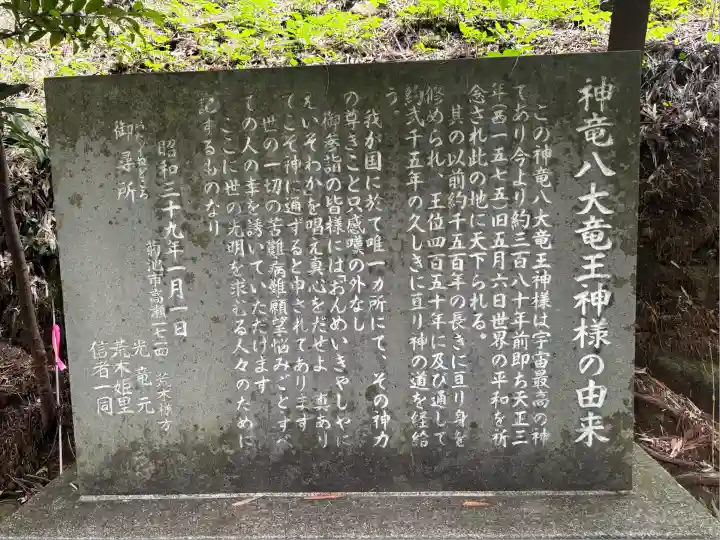 神竜八大竜王神様の由来
この神竜八大竜王神様は宇宙最高の神
であり今より約三百八十年前即ち天正三
年(西一五七五)旧五月六日世界の平和を祈
念され此の地に天下られる。
其の以前約千五百年の長きに亘り身を
修められ、王位四百五十年に及び通して
約弐千五年の久しきに亘り神の道を経給
う。
我が国に於て唯一カ所にて、その神力
の尊きこと只感嘆の外なし
御参詣の皆様にはおんめいきやしやに
えいそわかを唱え真心をだせよ 真あり
てこそ神に通ずると申されてあります
世の一切の苦難病難願望悩みごとすべ
ての人の幸を誘いていただけます
ここに世の光明を求むる人々のために
記するものなり
昭和三十九年一月一日
御尋所
菊池市高瀬 荒木禅方
光竜元
荒木姫里
信者一同